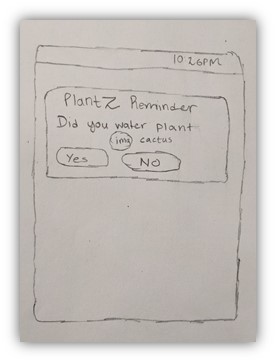 10:26PM
PlantZ Reminder
Did you water plant
img cactus
Yes
NO